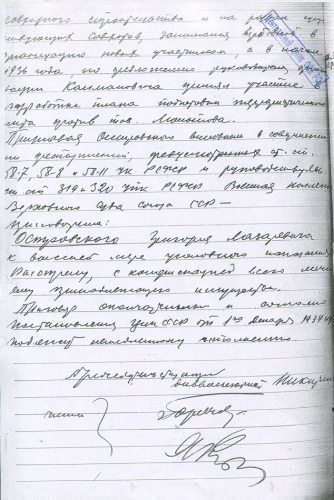 советского строительства и на
советов, занимался вербовкой в
организацию новых участников, а в начале
1936 года, по предложению руководителя
Каплановича принял участие в
разработке плана подготовки террористического
акта против тов. Молотова.
Признавая Островского виновным в совершении
преступлений, предусмотренных ст.ст.
58-7, 58-8 и 58-11 УК РСФСР и руководствуясь
ст.ст. 319 и 320 УПК РСФСР Военная коллегия
Верховного Суда Союза ССР —
приговорила:
Островского Григория Лазаревича
к высшей мере уголовного наказания
расстрелу, с конфискацией всего лично
ему принадлежащего имущества.
Приговор окончательный и в силу
постановления ЦИК СССР от 1го декабря 1934 г.
подлежит немедленному исполнению.
Председательствующий
диввоенюрист Никитченко
члены